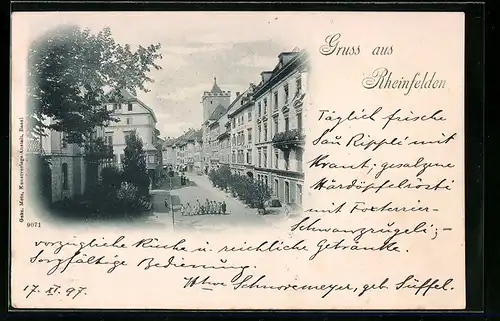 Gruss aus
Rheinfelden
Täglich frische
Sau Rippli mit
Kraut, gesalzene
Härdöpfelrösti
mit Foxterrier-
Schwanzzrügeli; -
vorzügliche Küche u reichliche Getränke.
Sorgfältige Bedienung
Wtwe Schnorremeyer, geb. Süffel.
17. XI. 97.
Gebr. Metz, Kunstverlags-Anstalt, Basel.
9071